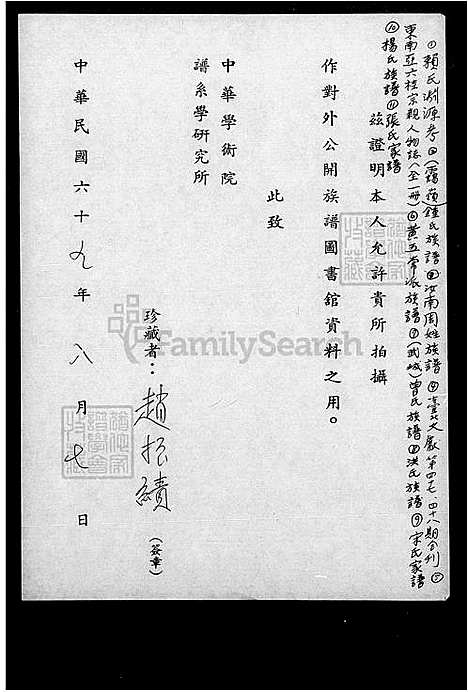 ①賴氏淵源考②(霞嶺)鍾氏族譜③汝南周姓族譜④臺北文獻第四七、四十八期合刊⑤
東南亞六桂宗親人物誌(全一冊)⑥黃五常派族譜⑦(武城)曾氏族譜⑧洪氏族譜⑨宋氏家譜
⑩楊氏族譜⑪張氏家譜
茲證明本人允許貴所拍攝
作對外公開族譜圖書館資料之用。
此致
中華學術院
譜系學研究所
珍藏者：趙振績(簽章)
中華民國六十九年八月七日
FamilySearch